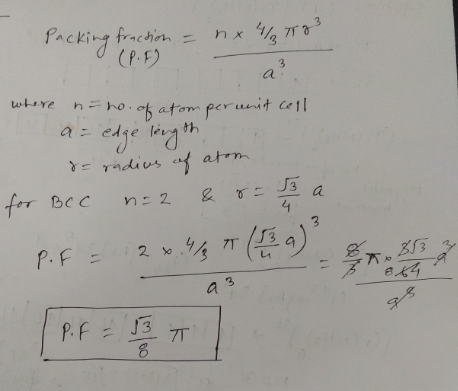 Packing fraction = n x 4/3 πr³
(P.F) a³
where n = no. of atom per unit cell
a = edge length
r = radius of atom
for BCC n = 2 & r = √3/4 a
P.F = 2 x 4/3 π (√3/4 a)³ / a³ = 8/3 π x 3√3/64 a³ / a³
P.F = √3/8 π